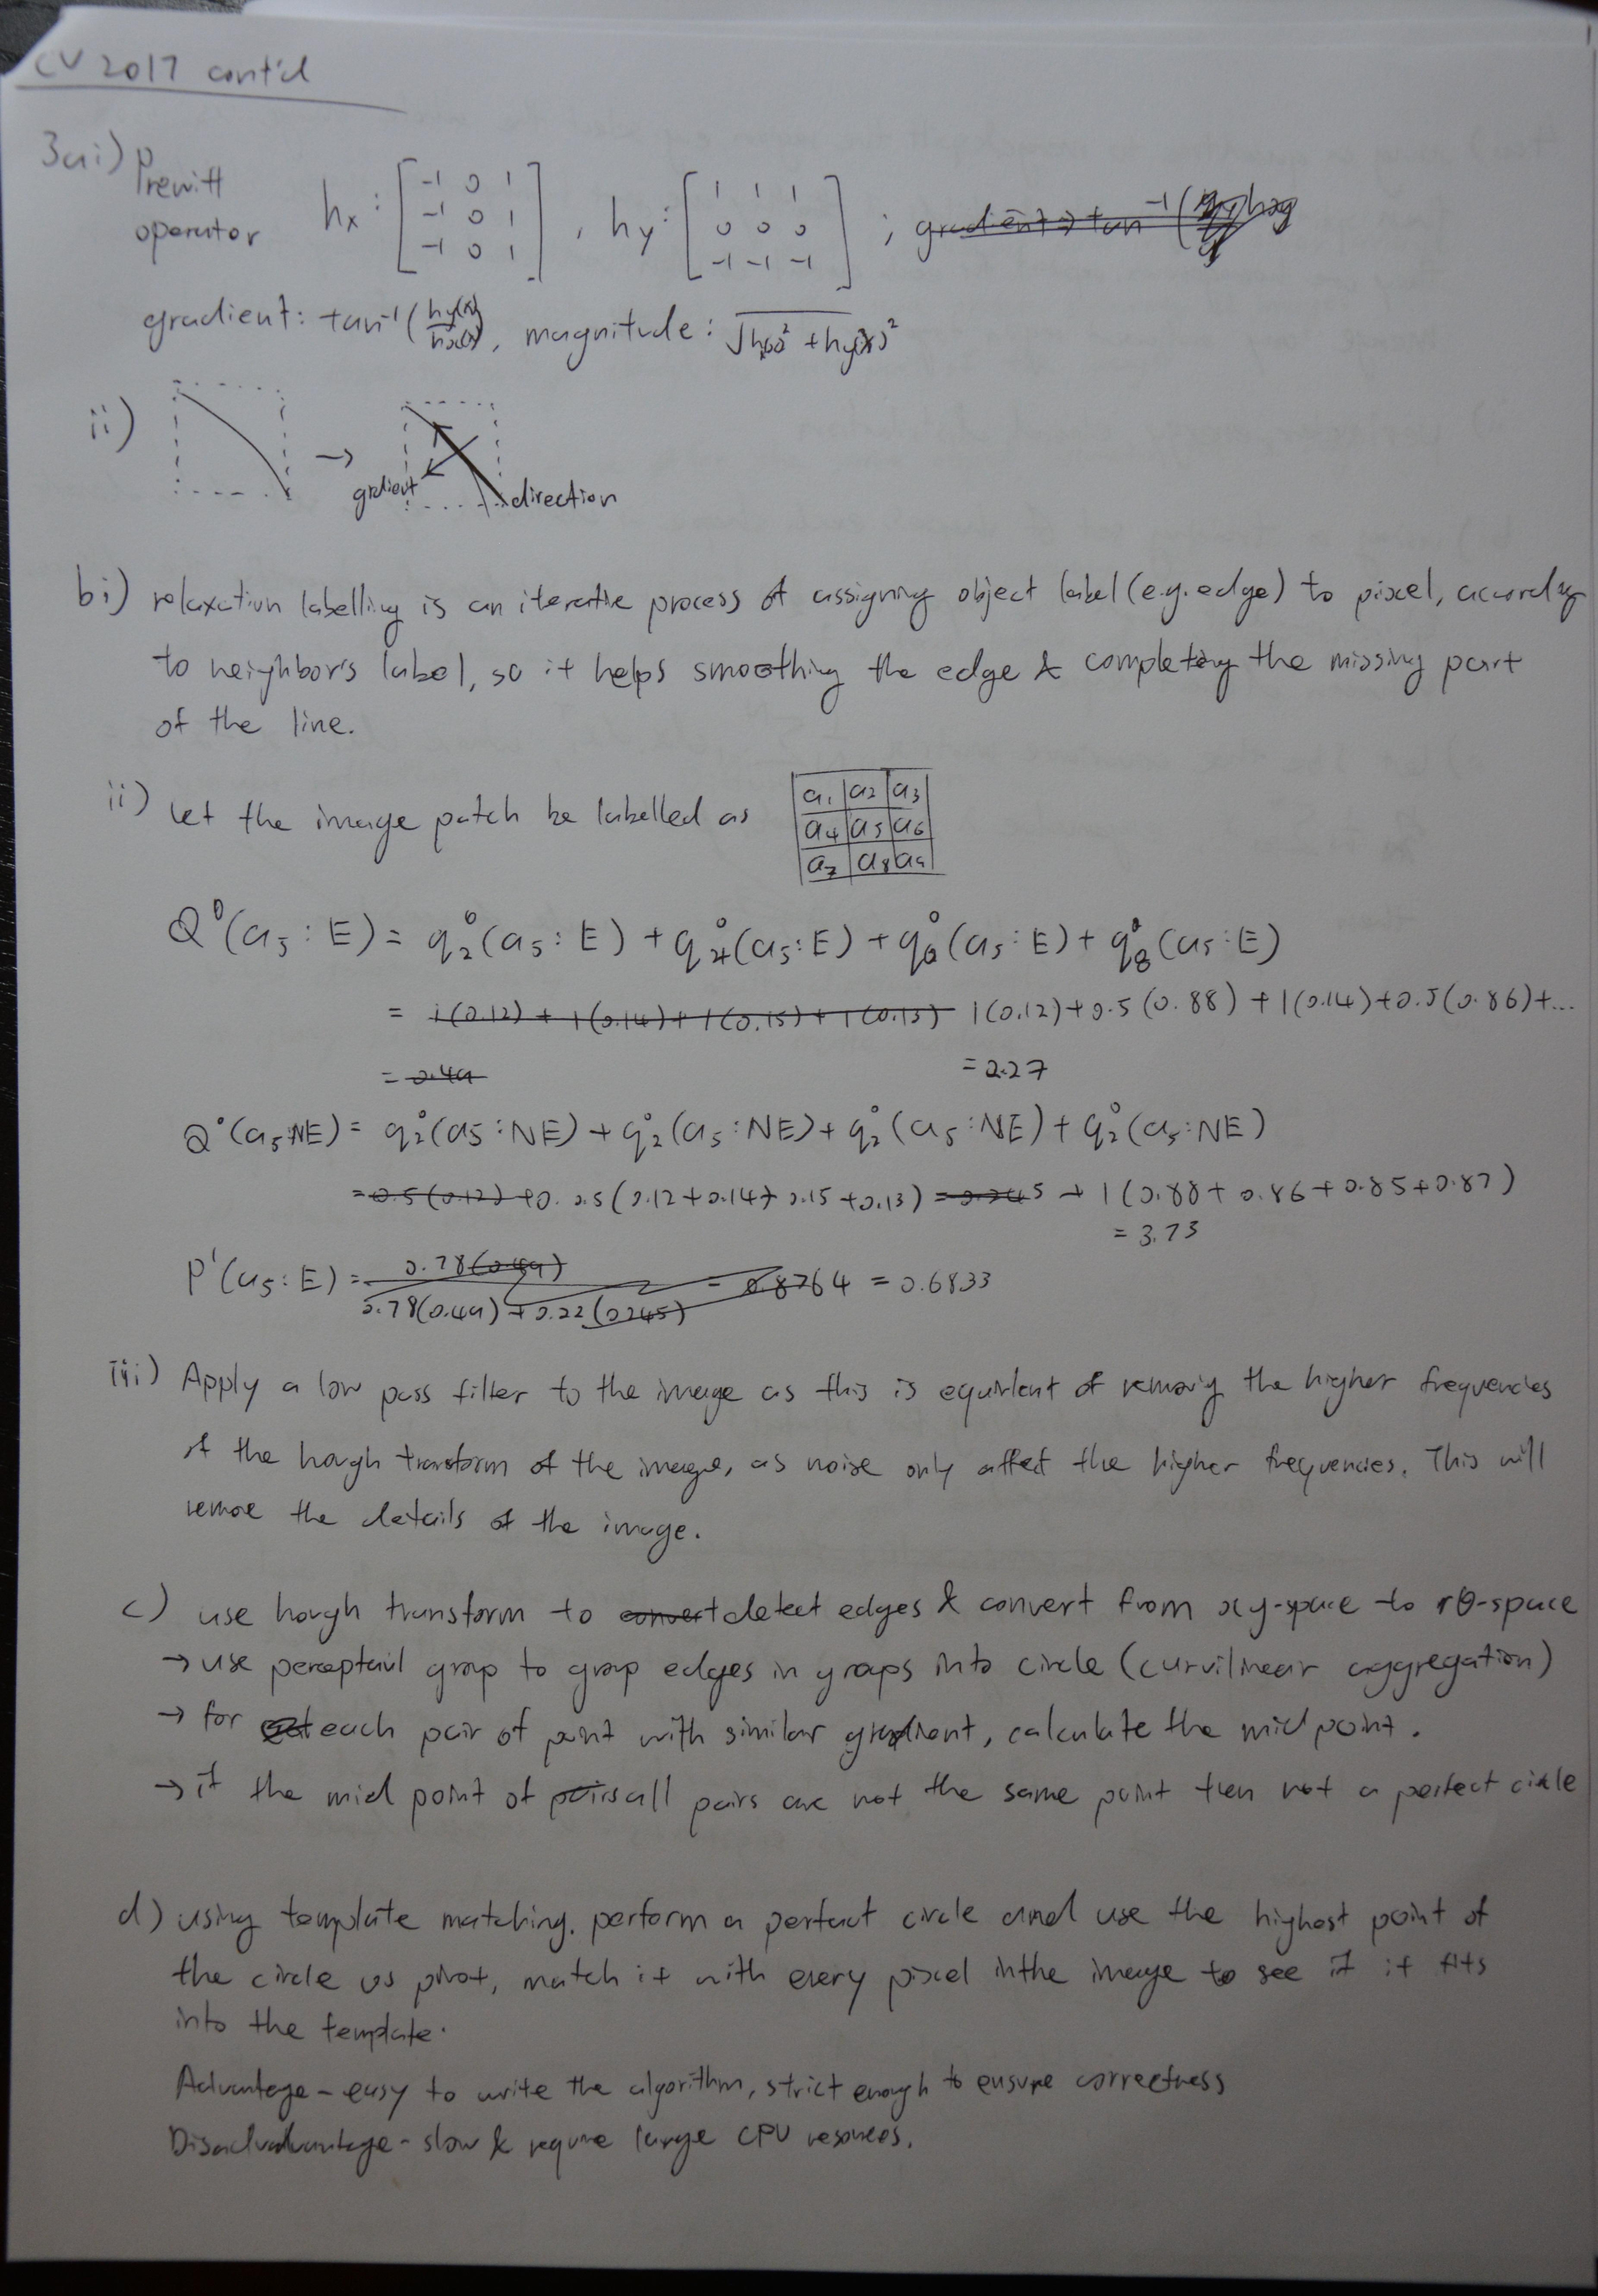 CV 2017 cont'd
3ai) Prewitt operator hx: [-1 0 1; -1 0 1; -1 0 1], hy: [1 1 1; 0 0 0; -1 -1 -1] ;
gradient: tan⁻¹(hy(x)/hx(x)), magnitude: √hx(x)² + hy(x)²
ii) → gradient direction
bi) relaxation labelling is an iterative process of assigning object label (e.g. edge) to pixel, according
to neighbors label, so it helps smoothing the edge & completing the missing part
of the line.
ii) let the image patch be labelled as
a₁ a₂ a₃
a₄ a₅ a₆
a₇ a₈ a₉
Q⁰(a₅ : E) = q₂⁰(a₅ : E) + q₄⁰(a₅ : E) + q₆⁰(a₅ : E) + q₈⁰(a₅ : E)
= 1(0.12) + 1(0.14) + 1(0.15) + 1(0.13) 1(0.12) + 0.5(0.88) + 1(0.14) + 0.5(0.86) + ...
= 0.49 = 2.27
Q⁰(a₅:NE) = q₂⁰(a₅ : NE) + q₂⁰(a₅ : NE) + q₂⁰(a₅ : NE) + q₂⁰(a₅ : NE)
= 0.5(0.12) + 0. 0.5(0.12 + 0.14 + 0.15 + 0.13) = 0.245 + 1(0.88 + 0.86 + 0.85 + 0.87)
= 3.73
P¹(a₅ : E) = 0.78(0.49) / 0.78(0.49) + 0.22(0.245) = 0.8764 = 0.6833
iii) Apply a low pass filter to the image as this is equivlent of removing the higher frequencies
of the hough transform of the image, as noise only affect the higher frequencies. This will
remove the details of the image.
c) use hough transform to convert detect edges & convert from xy-space to rθ-space
→ use group to group edges in groups into circle (curvilinear aggregation)
→ for each pair of point with similar gradient, calculate the mid point.
→ if the mid point of pairs all pairs are not the same point then not a perfect circle
d) using template matching. perform a perfect circle and use the highest point of
the circle as pivot, match it with every pixel in the image to see if it fits
into the template.
Advantage - easy to write the algorithm, strict enough to ensure correctness
Disadvantage - slow & require large CPU resources.